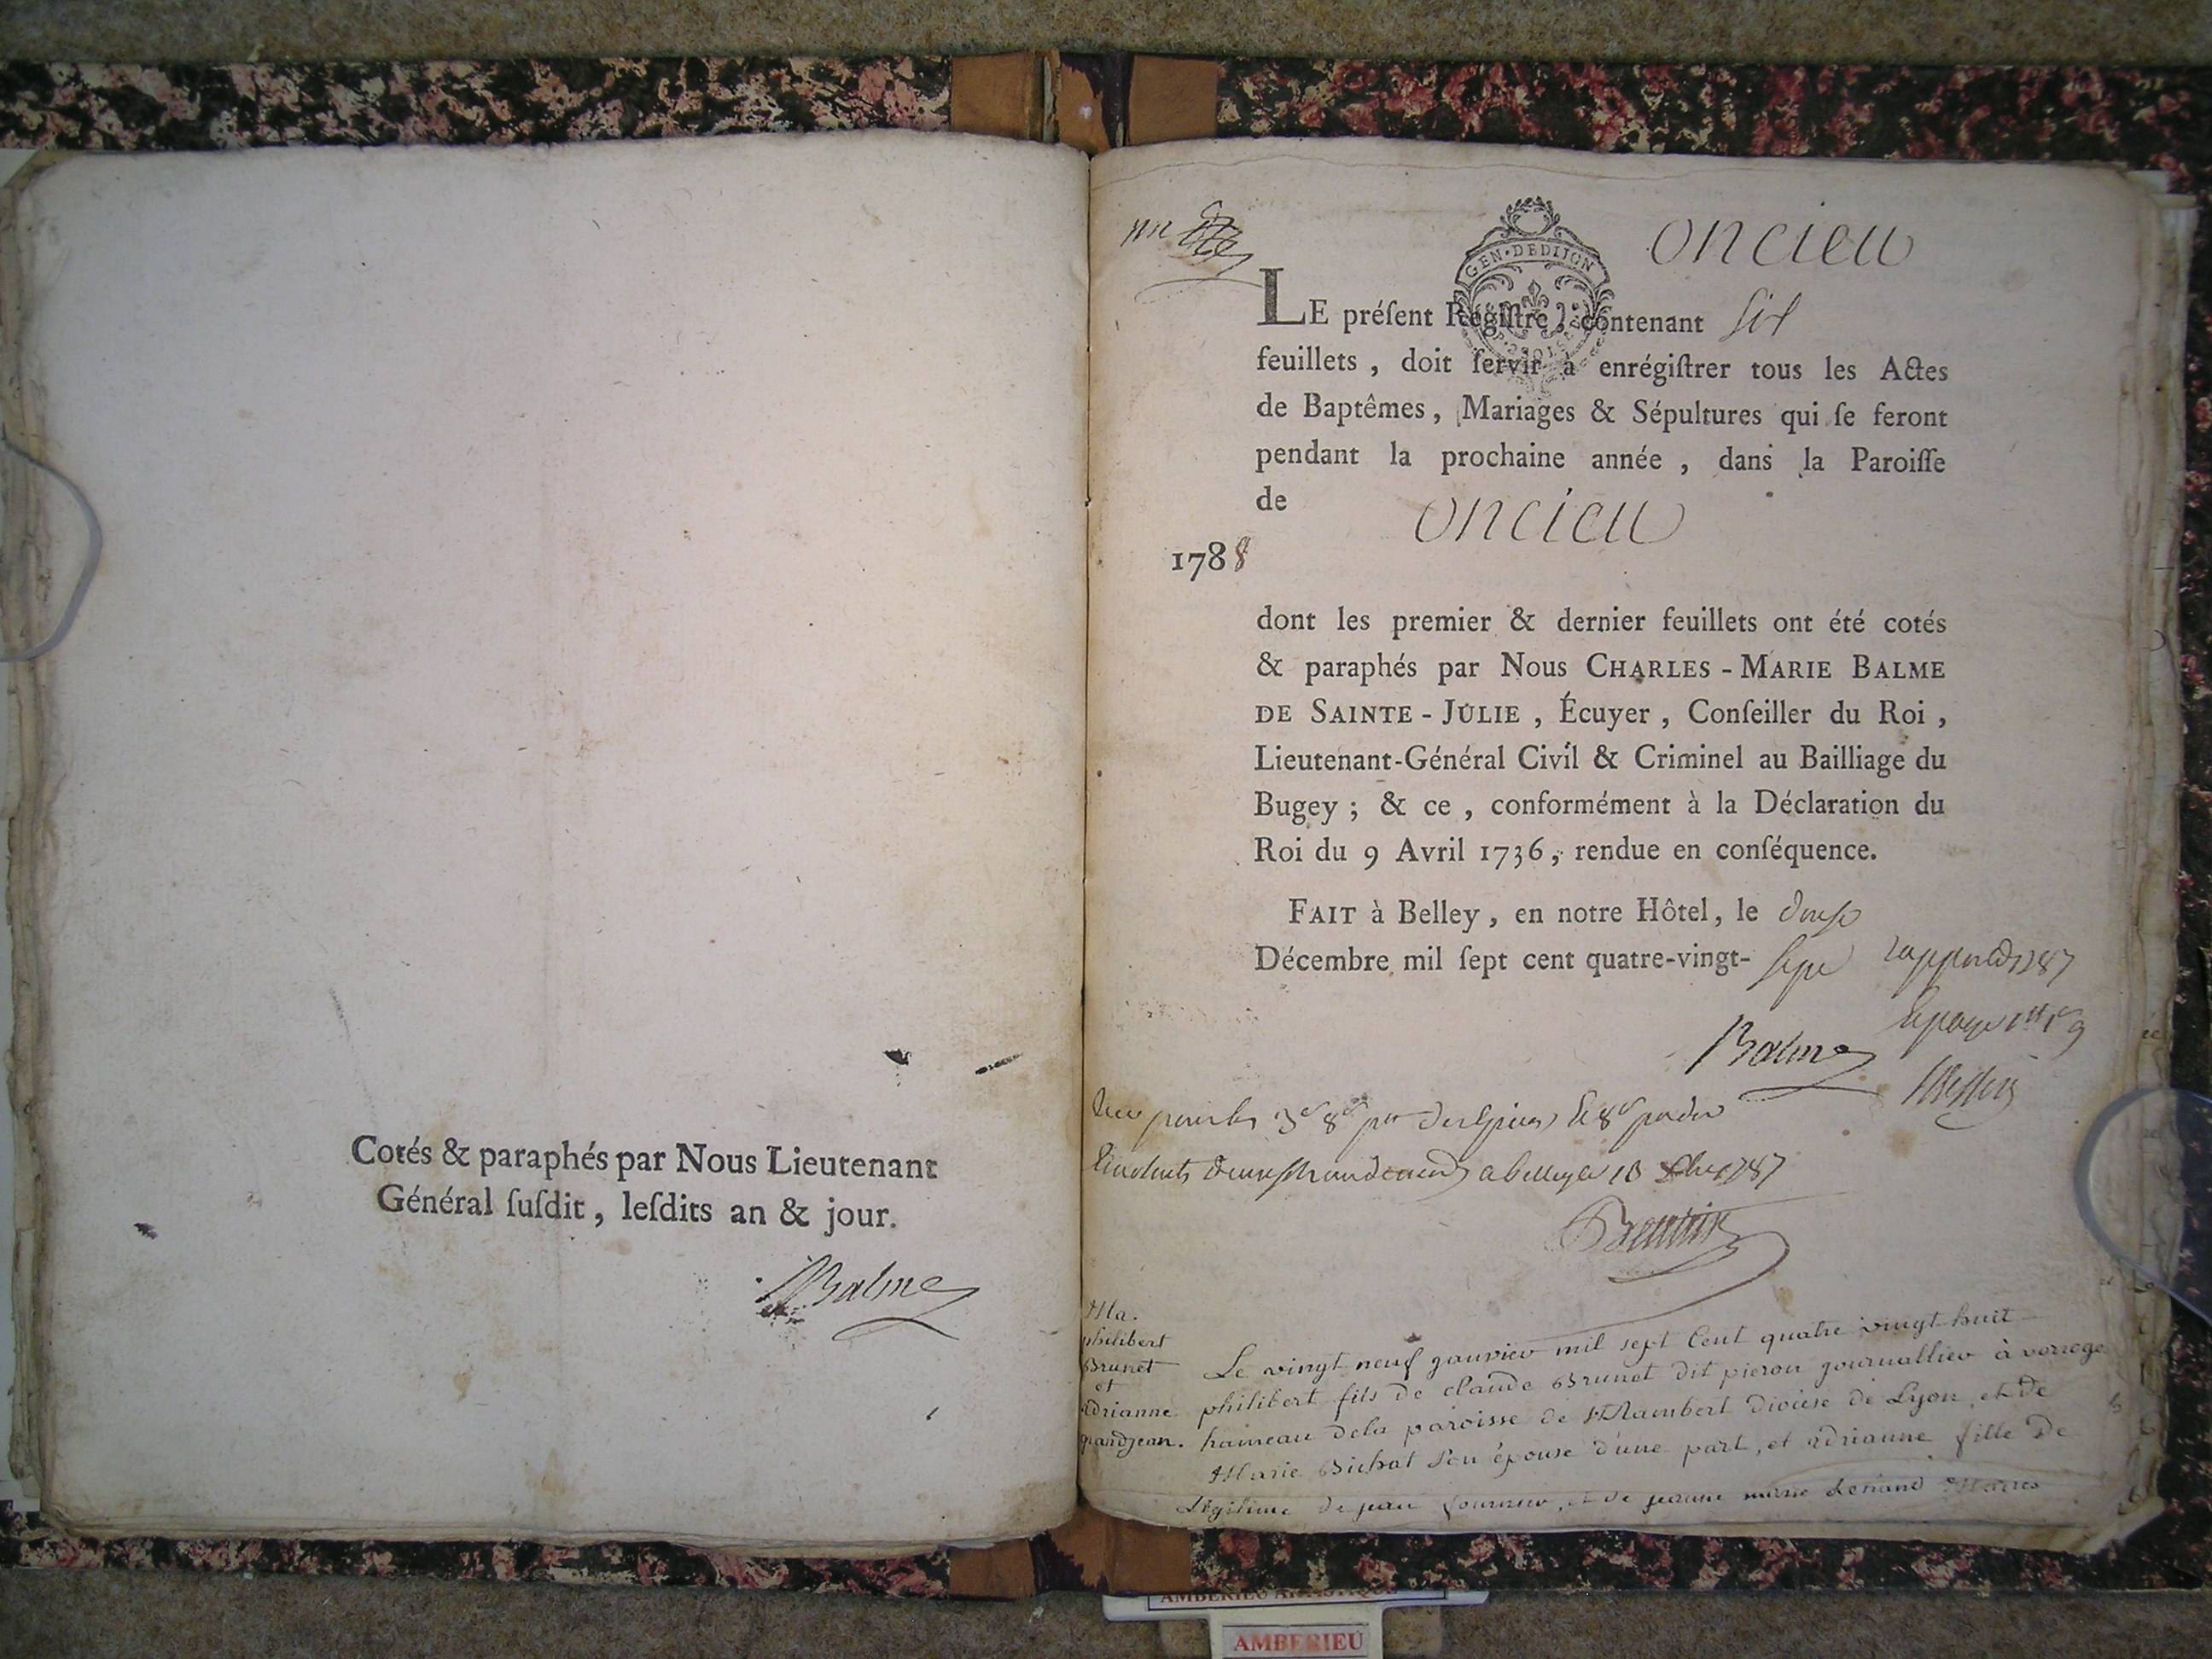 Cotés & paraphés par Nous Lieutenant
Général ſuſdit, leſdits an & jour.
Balme
un
GEN·DEDIJON
oncieu
LE préſent Regiſtre, contenant six
feuillets, doit ſervir à enrégiſtrer tous les Actes
de Baptêmes, Mariages & Sépultures qui ſe feront
pendant la prochaine année, dans la Paroiſſe
de oncieu
1788
dont les premier & dernier feuillets ont été cotés
& paraphés par Nous CHARLES-MARIE BALME
DE SAINTE-JULIE, Écuyer, Conſeiller du Roi,
Lieutenant-Général Civil & Criminel au Bailliage du
Bugey; & ce, conformément à la Déclaration du
Roi du 9 Avril 1736, rendue en conſéquence.
FAIT à Belley, en notre Hôtel, le douse
Décembre mil ſept cent quatre-vingt-sept
Balme
a belley le 13 1787
Ma.
philibert
Brunet
et
adrianne
grandjean.
Le vingt neuf ganvier mil sept Cent quatre vingt huit
philibert fils de claude Brunet dit pieron journallier à vorrage
hameau dela paroisse de st Rambert diocèse de Lyon, et de
Marie Bichat son épouse d'une part, et adrianne fille de
Légitime de jean fournier, et de jeanne marie
AMBERIEU
AMBERIEU